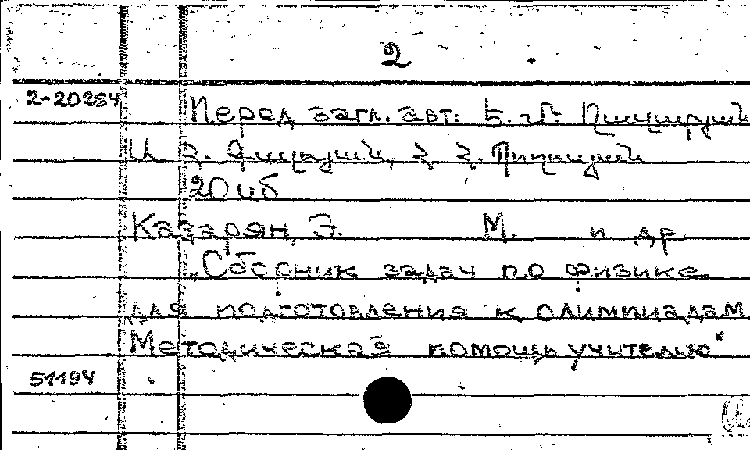 2
2-20284
Перед загл. авт: Է. Մ. Ղազարյան
Ա. Հ.
20 սմ
Казарян, Э. М. и др
"Сборник задач по физике
для подготовления к олимпиадам
Методическая помощь учителю"
51194